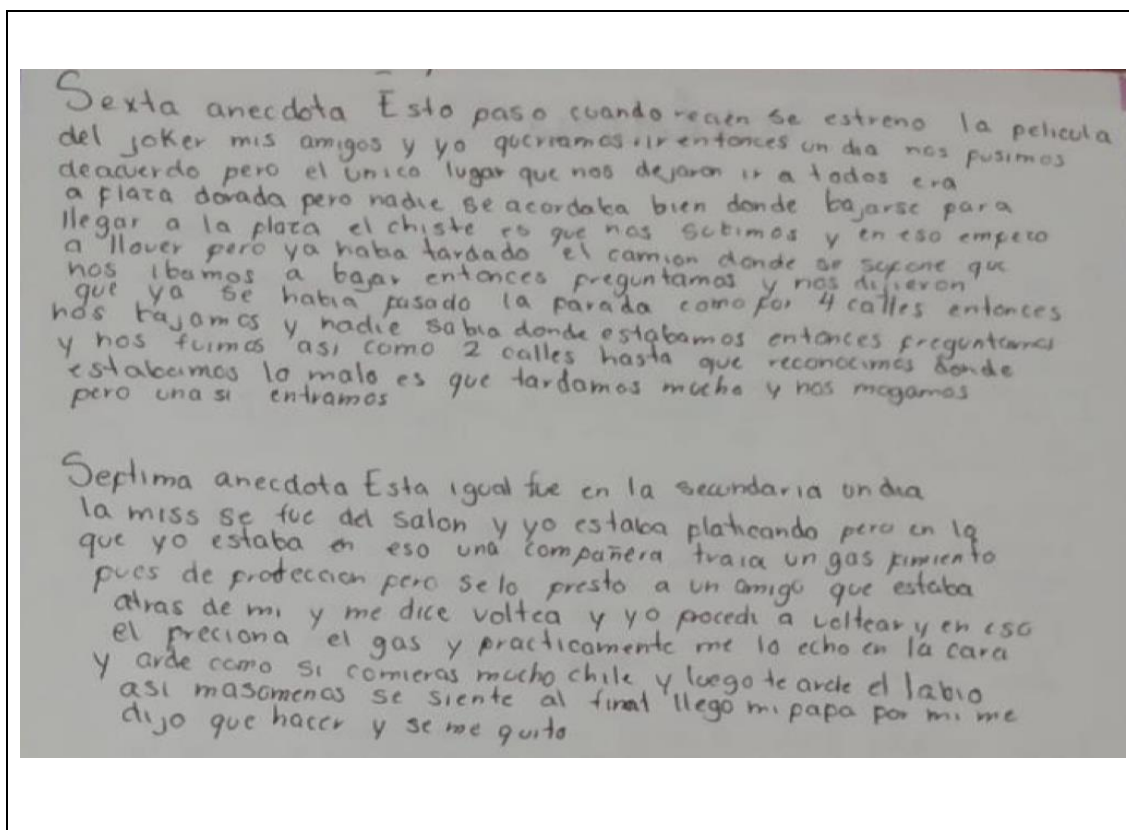 Sexta anecdota Esto paso cuando recien se estreno la pelicula
del joker mis amigos y yo queriamos ir entonces un dia nos pusimos
deacuerdo pero el unico lugar que nos dejaron ir a todos era
a plaza dorada pero nadie se acordaba bien donde bajarse para
llegar a la plaza el chiste es que nos subimos y en eso empezo
a llover pero ya habia tardado el camion donde se supone que
nos ibamos a bajar entonces preguntamos y nos dijieron
que ya se habia pasado la parada como por 4 calles entonces
nos bajamos y nadie sabia donde estabamos entonces preguntamos
y nos fuimos asi como 2 calles hasta que reconocimos donde
estabamos lo malo es que tardamos mucho y nos mogamos
pero una si entramos
Septima anecdota Esta igual fue en la secundaria un dia
la miss se fue del salon y yo estaba platicando pero en lo
que yo estaba en eso una compañera traia un gas pimiento
pues de proteccion pero se lo presto a un amigo que estaba
atras de mi y me dice voltea y yo procedi a voltear y en eso
el preciona el gas y practicamente me lo echo en la cara
y arde como si comieras mucho chile y luego te arde el labio
asi masomenos se siente al final llego mi papa por mi me
dijo que hacer y se me quito